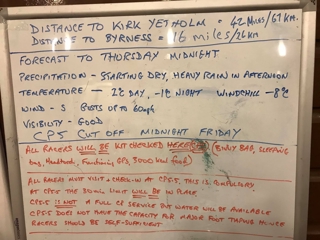 DISTANCE TO KIRK YETHOLM = 42 MILES/67 KM.
DISTANCE TO BYRNESS = 16 miles/26KM
FORECAST TO THURSDAY MIDNIGHT
PRECIPITATION - STARTING DRY, HEAVY RAIN IN AFTERNOON
TEMPERATURE - 2°C DAY, -1°C NIGHT WINDCHILL -8°C
WIND - S GUSTS UP TO 60mph
VISIBILITY - GOOD
CP5 CUT OFF MIDNIGHT FRIDAY
ALL RACERS WILL BE KIT CHECKED HERE (BIVVY BAG, SLEEPING
bag, Headtorch, Functioning GPS, 3000 kcal food)
ALL RACERS MUST VISIT & CHECK-IN AT CP5.5, THIS IS COMPULSORY.
AT CP5.5 THE 30 MIN LIMIT WILL BE IN PLACE
CP5.5 IS NOT A FULL CP SERVICE BUT WATER WILL BE AVAILABLE
CP5.5 DOES NOT HAVE THE CAPACITY FOR MAJOR FOOT TAPING HENCE
RACERS SHOULD BE SELF-SUFFICIENT